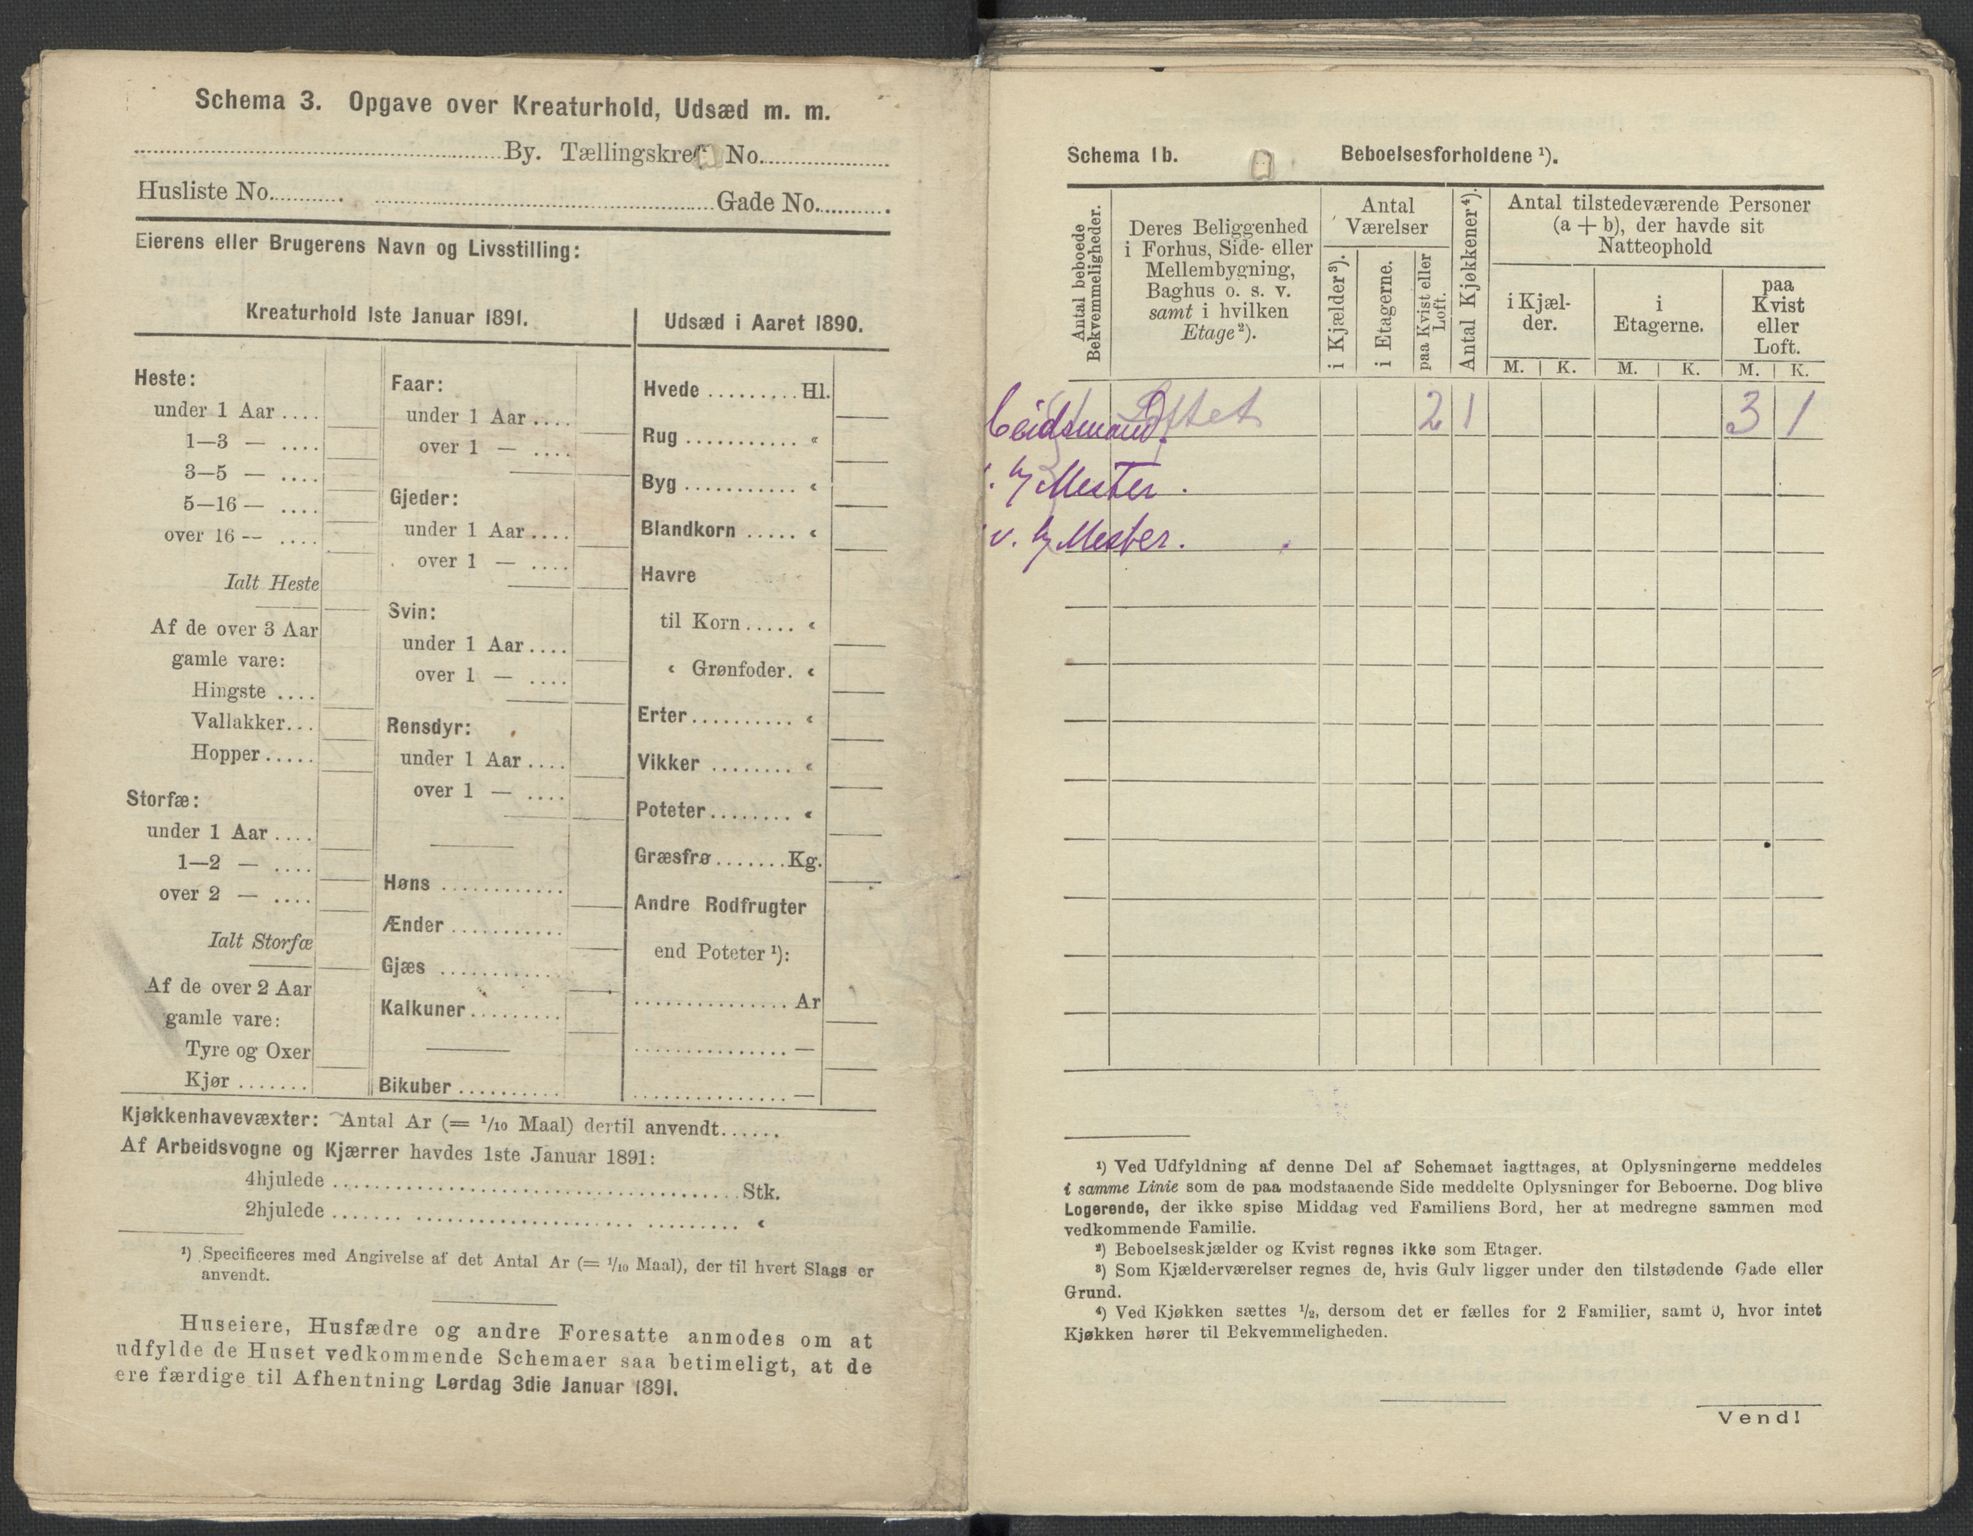 Schema 3. Opgave over Kreaturhold, Udsæd m. m.
By. Tællingskreds No.
Husliste No. Gade No.
Eierens eller Brugerens Navn og Livsstilling:
Kreaturhold 1ste Januar 1891.
Heste:
under 1 Aar ....
1—3 — ....
3—5 — ....
5—16 — ....
over 16 — ....
Ialt Heste
Af de over 3 Aar
gamle vare:
Hingste ....
Vallakker...
Hopper.....
Storfæ:
under 1 Aar ....
1—2 — ....
over 2 — ....
Ialt Storfæ
Af de over 2 Aar
gamle vare:
Tyre og Oxer
Kjør .......
Faar:
under 1 Aar....
over 1 — ....
Gjeder:
under 1 Aar....
over 1 — ....
Svin:
under 1 Aar....
over 1 — ....
Rensdyr:
under 1 Aar....
over 1 — ....
Høns ............
Ænder ...........
Gjæs ............
Kalkuner.........
Bikuber ..........
Udsæd i Aaret 1890.
Hvede ......... Hl.
Rug ........... «
Byg ........... «
Blandkorn ..... «
Havre
til Korn ..... «
« Grønfoder. «
Erter.......... «
Vikker ........ «
Poteter........ «
Græsfrø.......Kg.
Andre Rodfrugter
end Poteter ¹):
............... Ar
............... —
............... —
Kjøkkenhavevæxter: Antal Ar (= 1/10 Maal) dertil anvendt......
Af Arbeidsvogne og Kjærrer havdes 1ste Januar 1891:
4hjulede ..................................... Stk.
2hjulede ..................................... «
¹) Specificeres med Angivelse af det Antal Ar (= 1/10 Maal), der til hvert Slags er
anvendt.
Huseiere, Husfædre og andre Foresatte anmodes om at
udfylde de Huset vedkommende Schemaer saa betimeligt, at de
ere færdige til Afhentning Lørdag 3die Januar 1891.
Schema 1b. Beboelsesforholdene ¹).
Antal beboede
Bekvemmeligheder.
Deres Beliggenhed
i Forhus, Side- eller
Mellembygning,
Baghus o. s. v.
samt i hvilken
Etage ²).
Antal
Værelser
i Kjælder ³).
i Etagerne.
paa Kvist eller
Loft.
Antal Kjøkkener ⁴).
Antal tilstedeværende Personer
(a + b), der havde sit
Natteophold
i Kjæl-
der.
i
Etagerne.
paa
Kvist
eller
Loft.
M. K. M. K. M. K.
Loftet 2 1 3 1
beidsmand.
. Mester.
v. Mester.
¹) Ved Udfyldning af denne Del af Schemaet iagttages, at Oplysningerne meddeles
i samme Linie som de paa modstaaende Side meddelte Oplysninger for Beboerne. Dog blive
Logerende, der ikke spise Middag ved Familiens Bord, her at medregne sammen med
vedkommende Familie.
²) Beboelseskjælder og Kvist regnes ikke som Etager.
³) Som Kjælderværelser regnes de, hvis Gulv ligger under den tilstødende Gade eller
Grund.
⁴) Ved Kjøkken sættes 1/2, dersom det er fælles for 2 Familier, samt 0, hvor intet
Kjøkken hører til Bekvemmeligheden.
Vend!